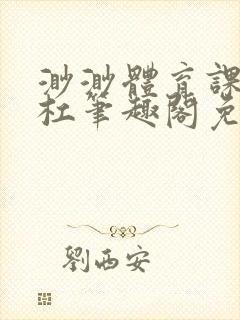 渺渺體育課
杜筆趣閣免
劉西安